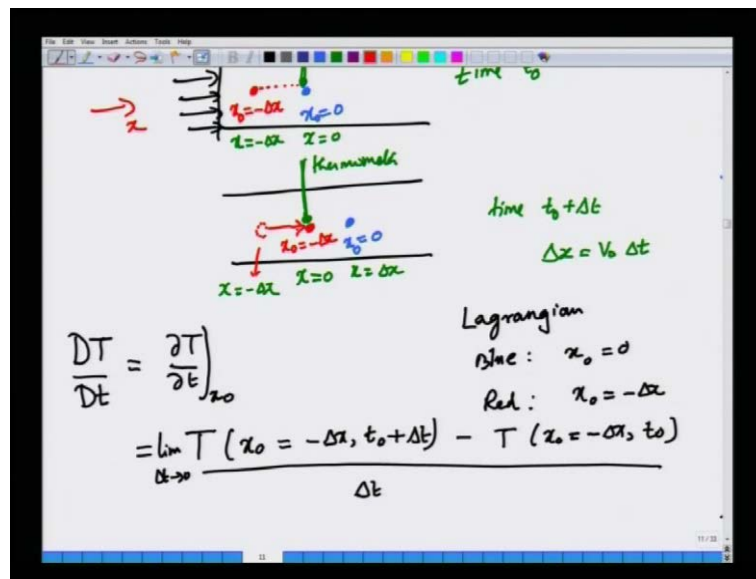 File Edit View Insert Actions Tools Help
time t₀
x₀=-Δx x₀=0
x
x=-Δx x=0
thermometer
time t₀+Δt
x₀=-Δx x₀=0
Δx = V₀ Δt
x=-Δx x=0 x=Δx
Lagrangian
Blue: x₀=0
DT/Dt = ∂T/∂t)x₀
Red: x₀=-Δx
= lim Δt→0 T(x₀=-Δx, t₀+Δt) - T(x₀=-Δx, t₀)
Δt
11